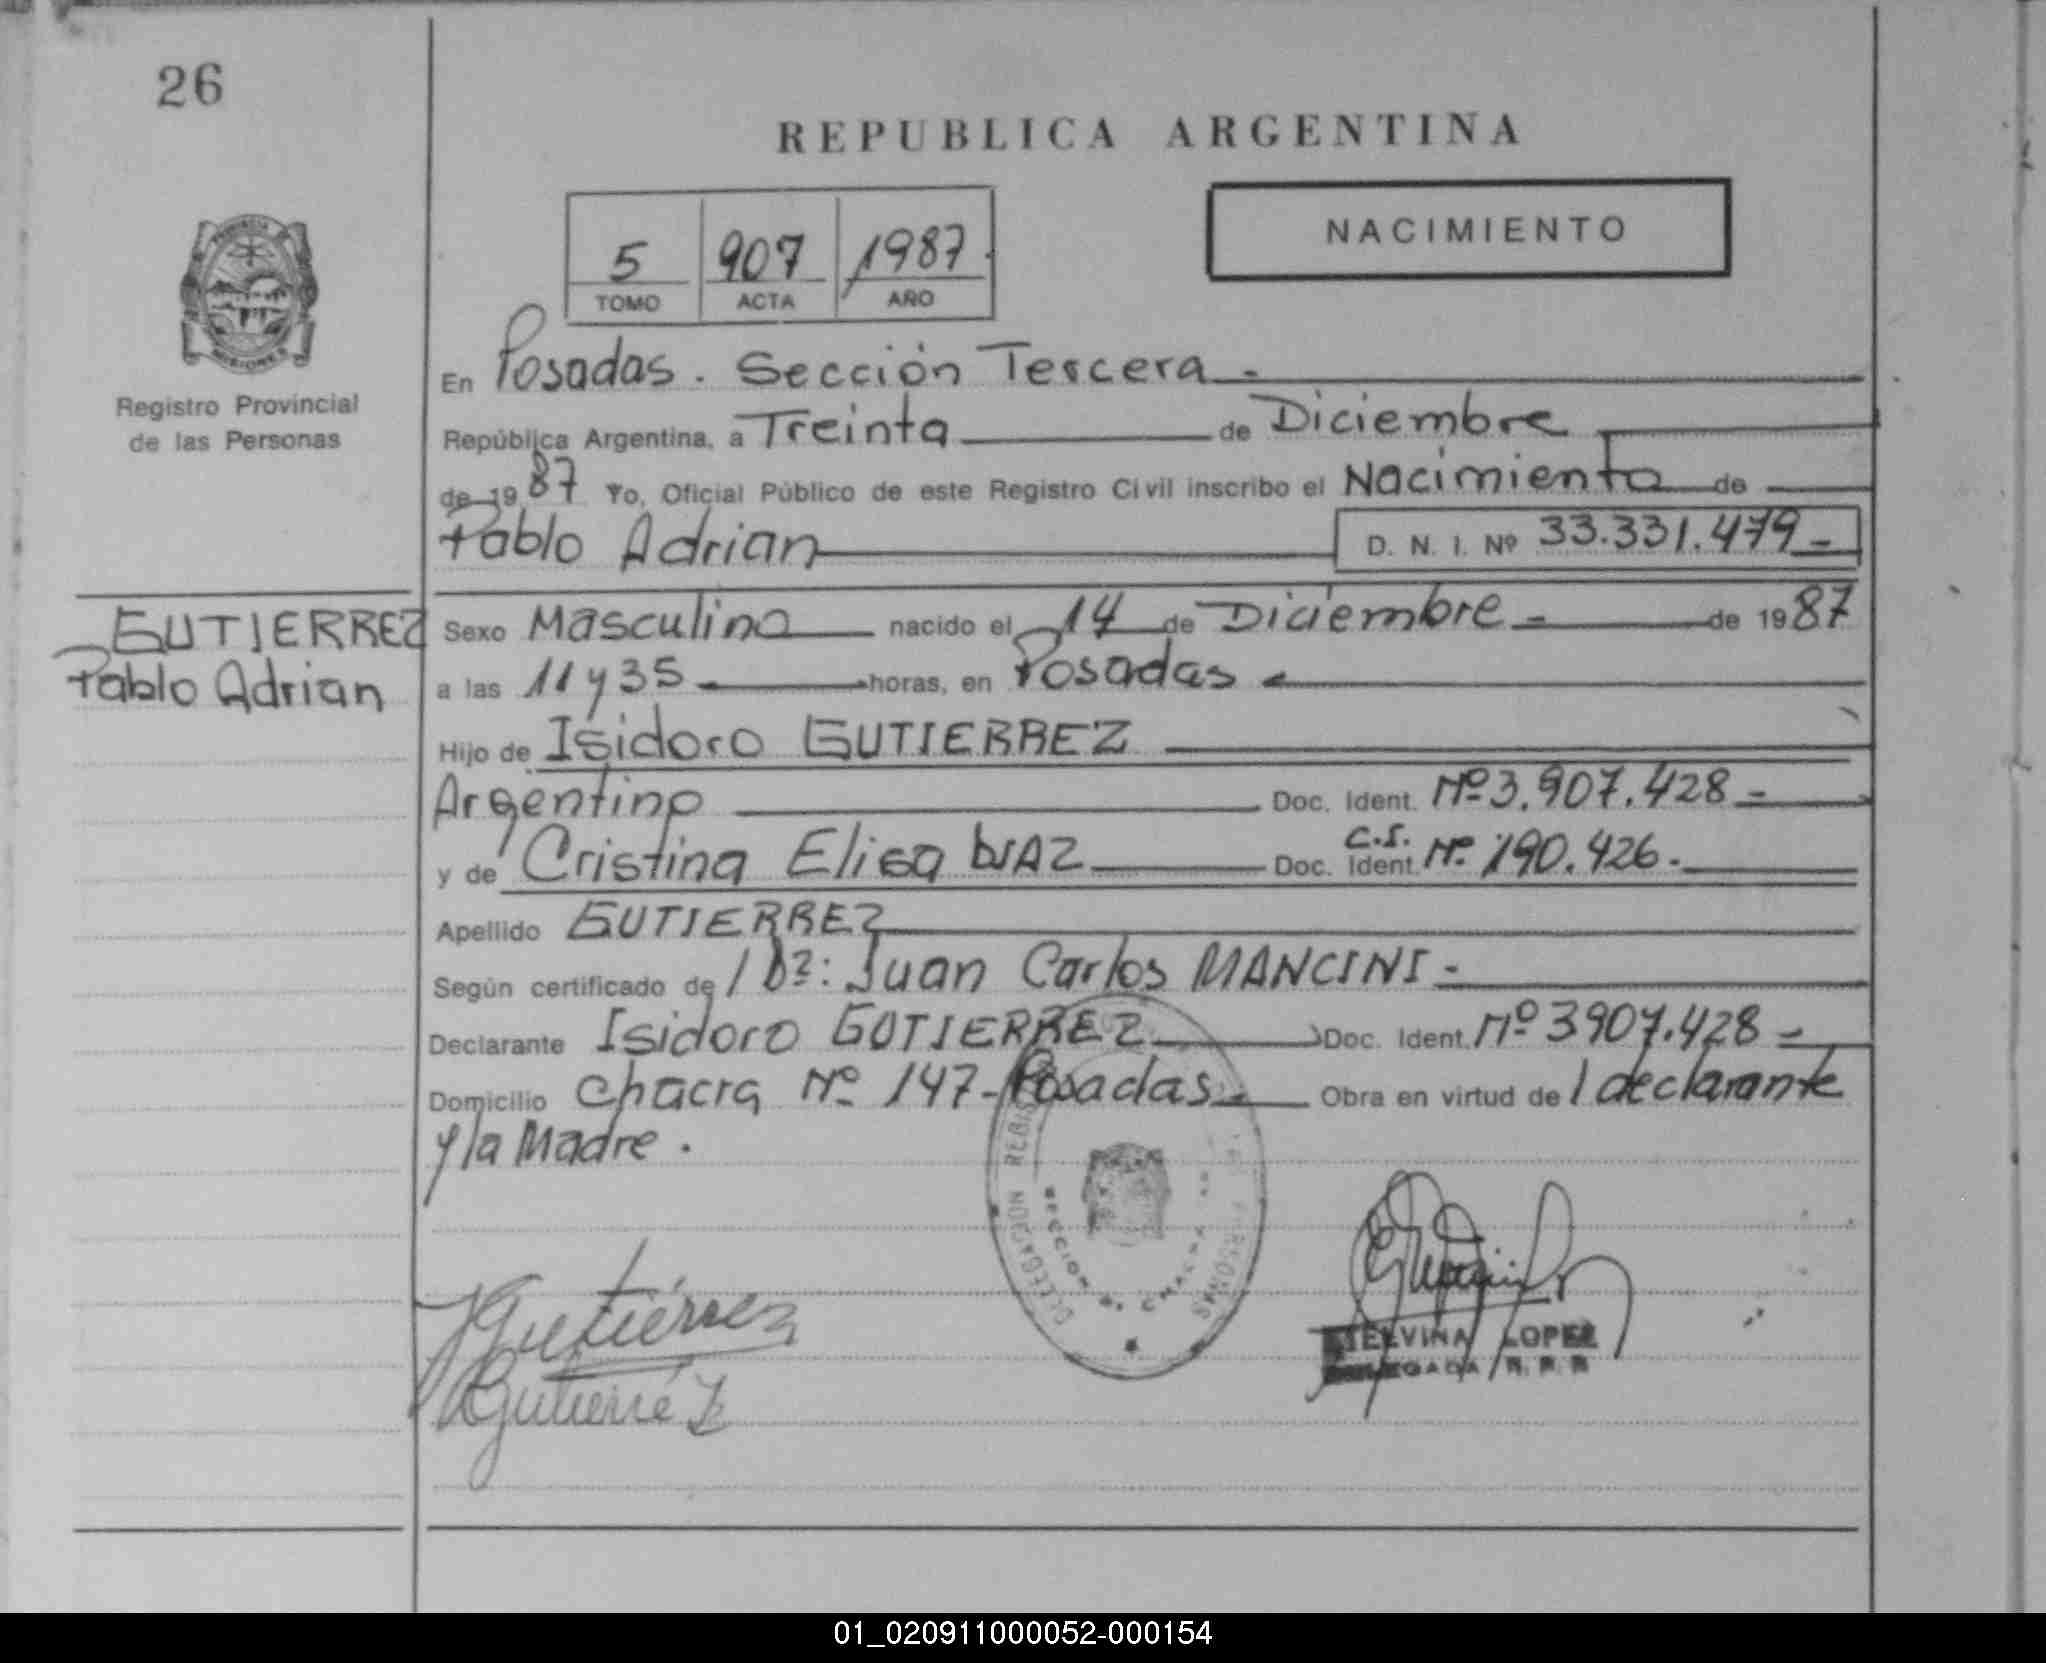 26
REPUBLICA ARGENTINA
NACIMIENTO
5 907 1987
TOMO ACTA AÑO
Registro Provincial
de las Personas
En Posadas. Sección Tercera -
República Argentina, a Treinta de Diciembre
de 1987 Yo, Oficial Público de este Registro Civil inscribo el Nacimiento de
Pablo Adrian D. N. I. Nº 33.331.479-
GUTIERREZ
Pablo Adrian
Sexo Masculino nacido el 14 de Diciembre - de 1987
a las 11 y 35 horas, en Posadas
Hijo de Isidoro GUTIERREZ
Argentino Doc. Ident. Nº 3.907.428-
y de Cristina Elisa DIAZ Doc. Ident. C.I. Nº 190.426.
Apellido GUTIERREZ
Según certificado de l Dr: Juan Carlos MANCINI-
Declarante Isidoro GUTIERREZ Doc. Ident. Nº 3907.428-
Domicilio Chacra Nº 147-Posadas- Obra en virtud de l declarante
y la Madre.
Gutiérrez
ETELVINA LOPEZ
DELEGADA R. P. P.
01_020911000052-000154